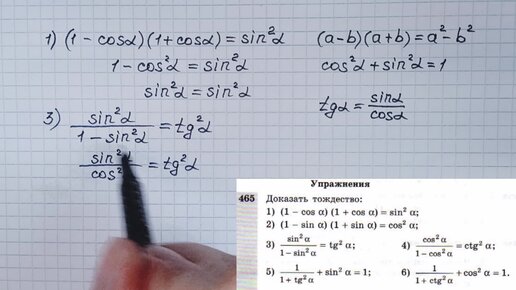 1) (1 - cosα)(1 + cosα) = sin²α
1 - cos²α = sin²α
sin²α = sin²α
3) sin²α / (1 - sin²α) = tg²α
sin²α / cos² = tg²α
(a-b)(a+b) = a² - b²
cos²α + sin²α = 1
tgα = sinα / cosα
Упражнения
465 Доказать тождество:
1) (1 - cos α) (1 + cos α) = sin² α;
2) (1 - sin α) (1 + sin α) = cos² α;
3) sin² α / (1 - sin² α) = tg² α; 4) cos² α / (1 - cos² α) = ctg² α;
5) 1 / (1 + tg² α) + sin² α = 1; 6) 1 / (1 + ctg² α) + cos² α = 1.